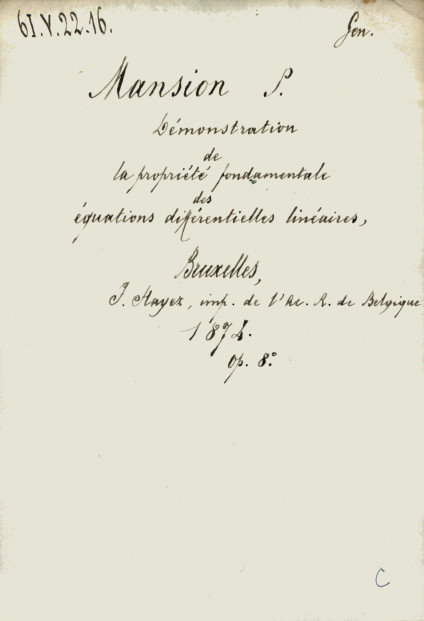 61.V.22.16.
Gen.
Mansion P.
Démonstration
de
la propriété fondamentale
des
équations différentielles linéaires,
Bruxelles,
F. Hayez, imp. de l'Ac. R. de Belgique
1874.
Op. 8°.
C